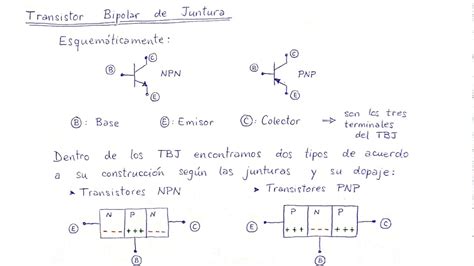 Transistor Bipolar de Juntura
Esquemáticamente:
C C
B NPN B PNP
E E
B: Base E: Emisor C: Colector → son los tres
terminales
del TBJ
Dentro de los TBJ encontramos dos tipos de acuerdo
a su construcción según las junturas y su dopaje:
➤ Transistores NPN ➤ Transistores PNP
N P N P N P
E --- +++ --- C E +++ --- +++ C
B B